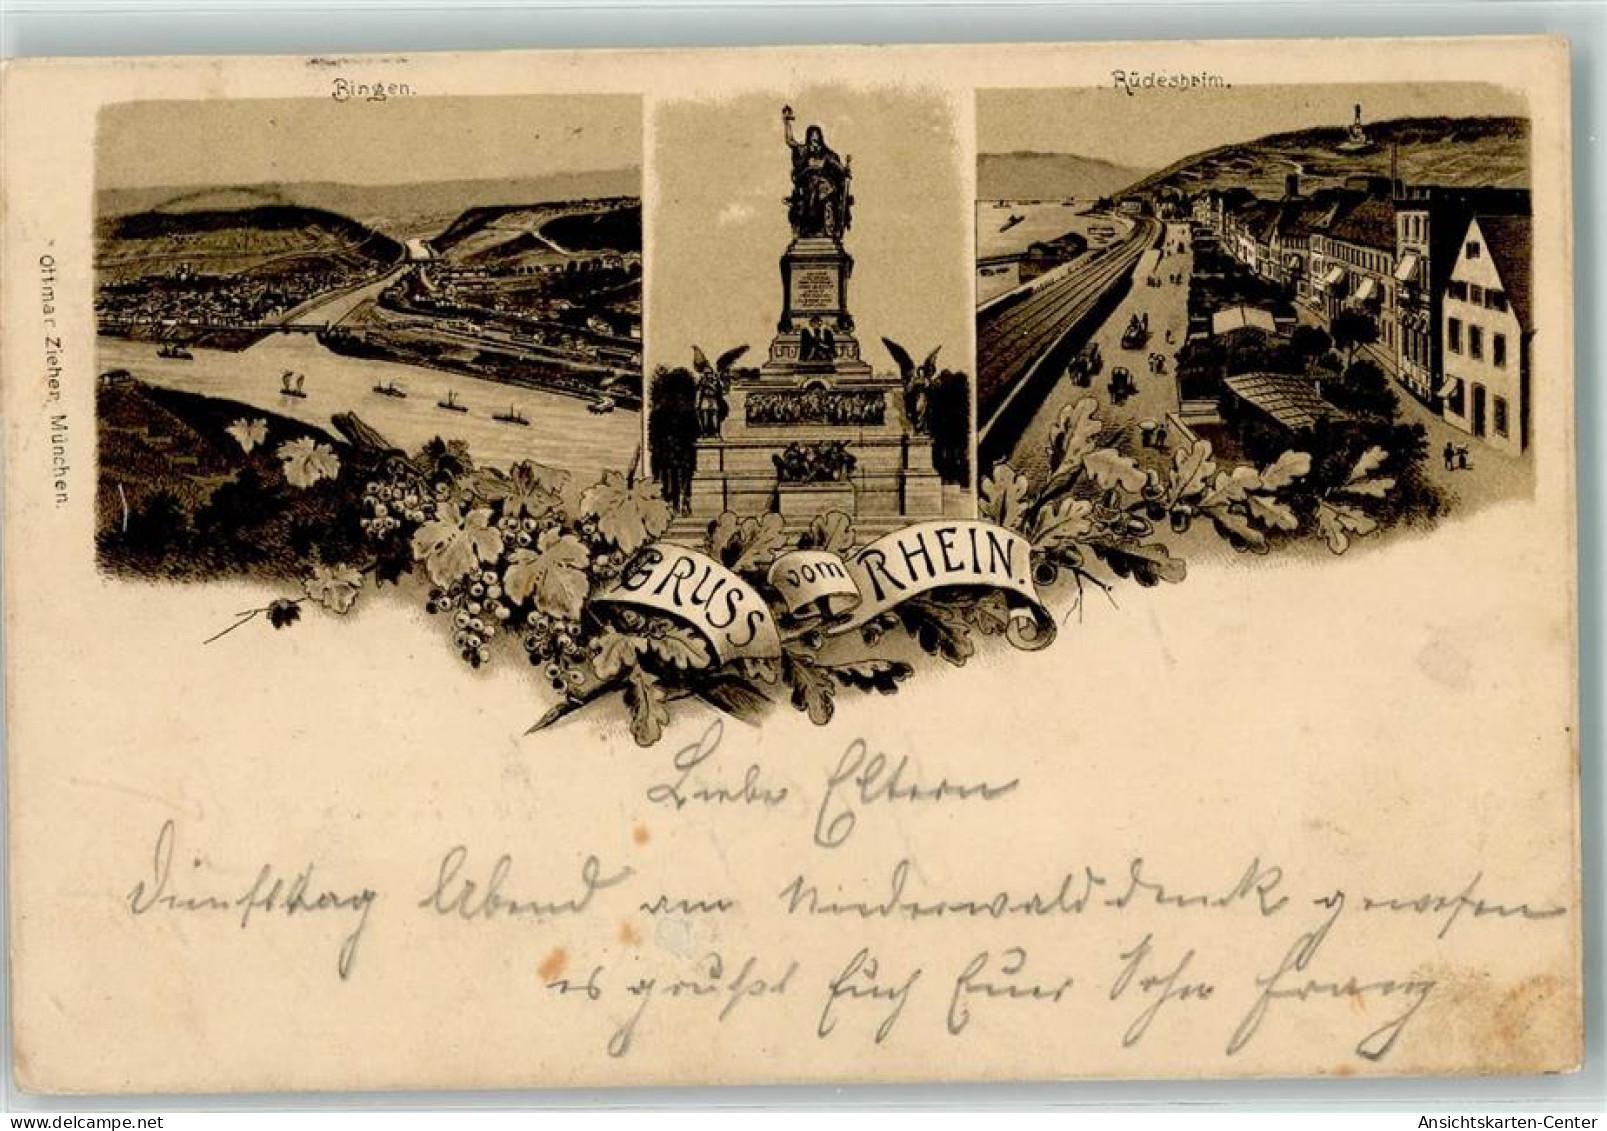 Bingen.
Rüdesheim.
Ottmar Zieher, München.
GRUSS vom RHEIN.
Liebe Eltern
Dienstag Abend am Niederwalddenk gewesen
es grüßt Euch Euer Sohn Franz
Ansichtskarten-Center